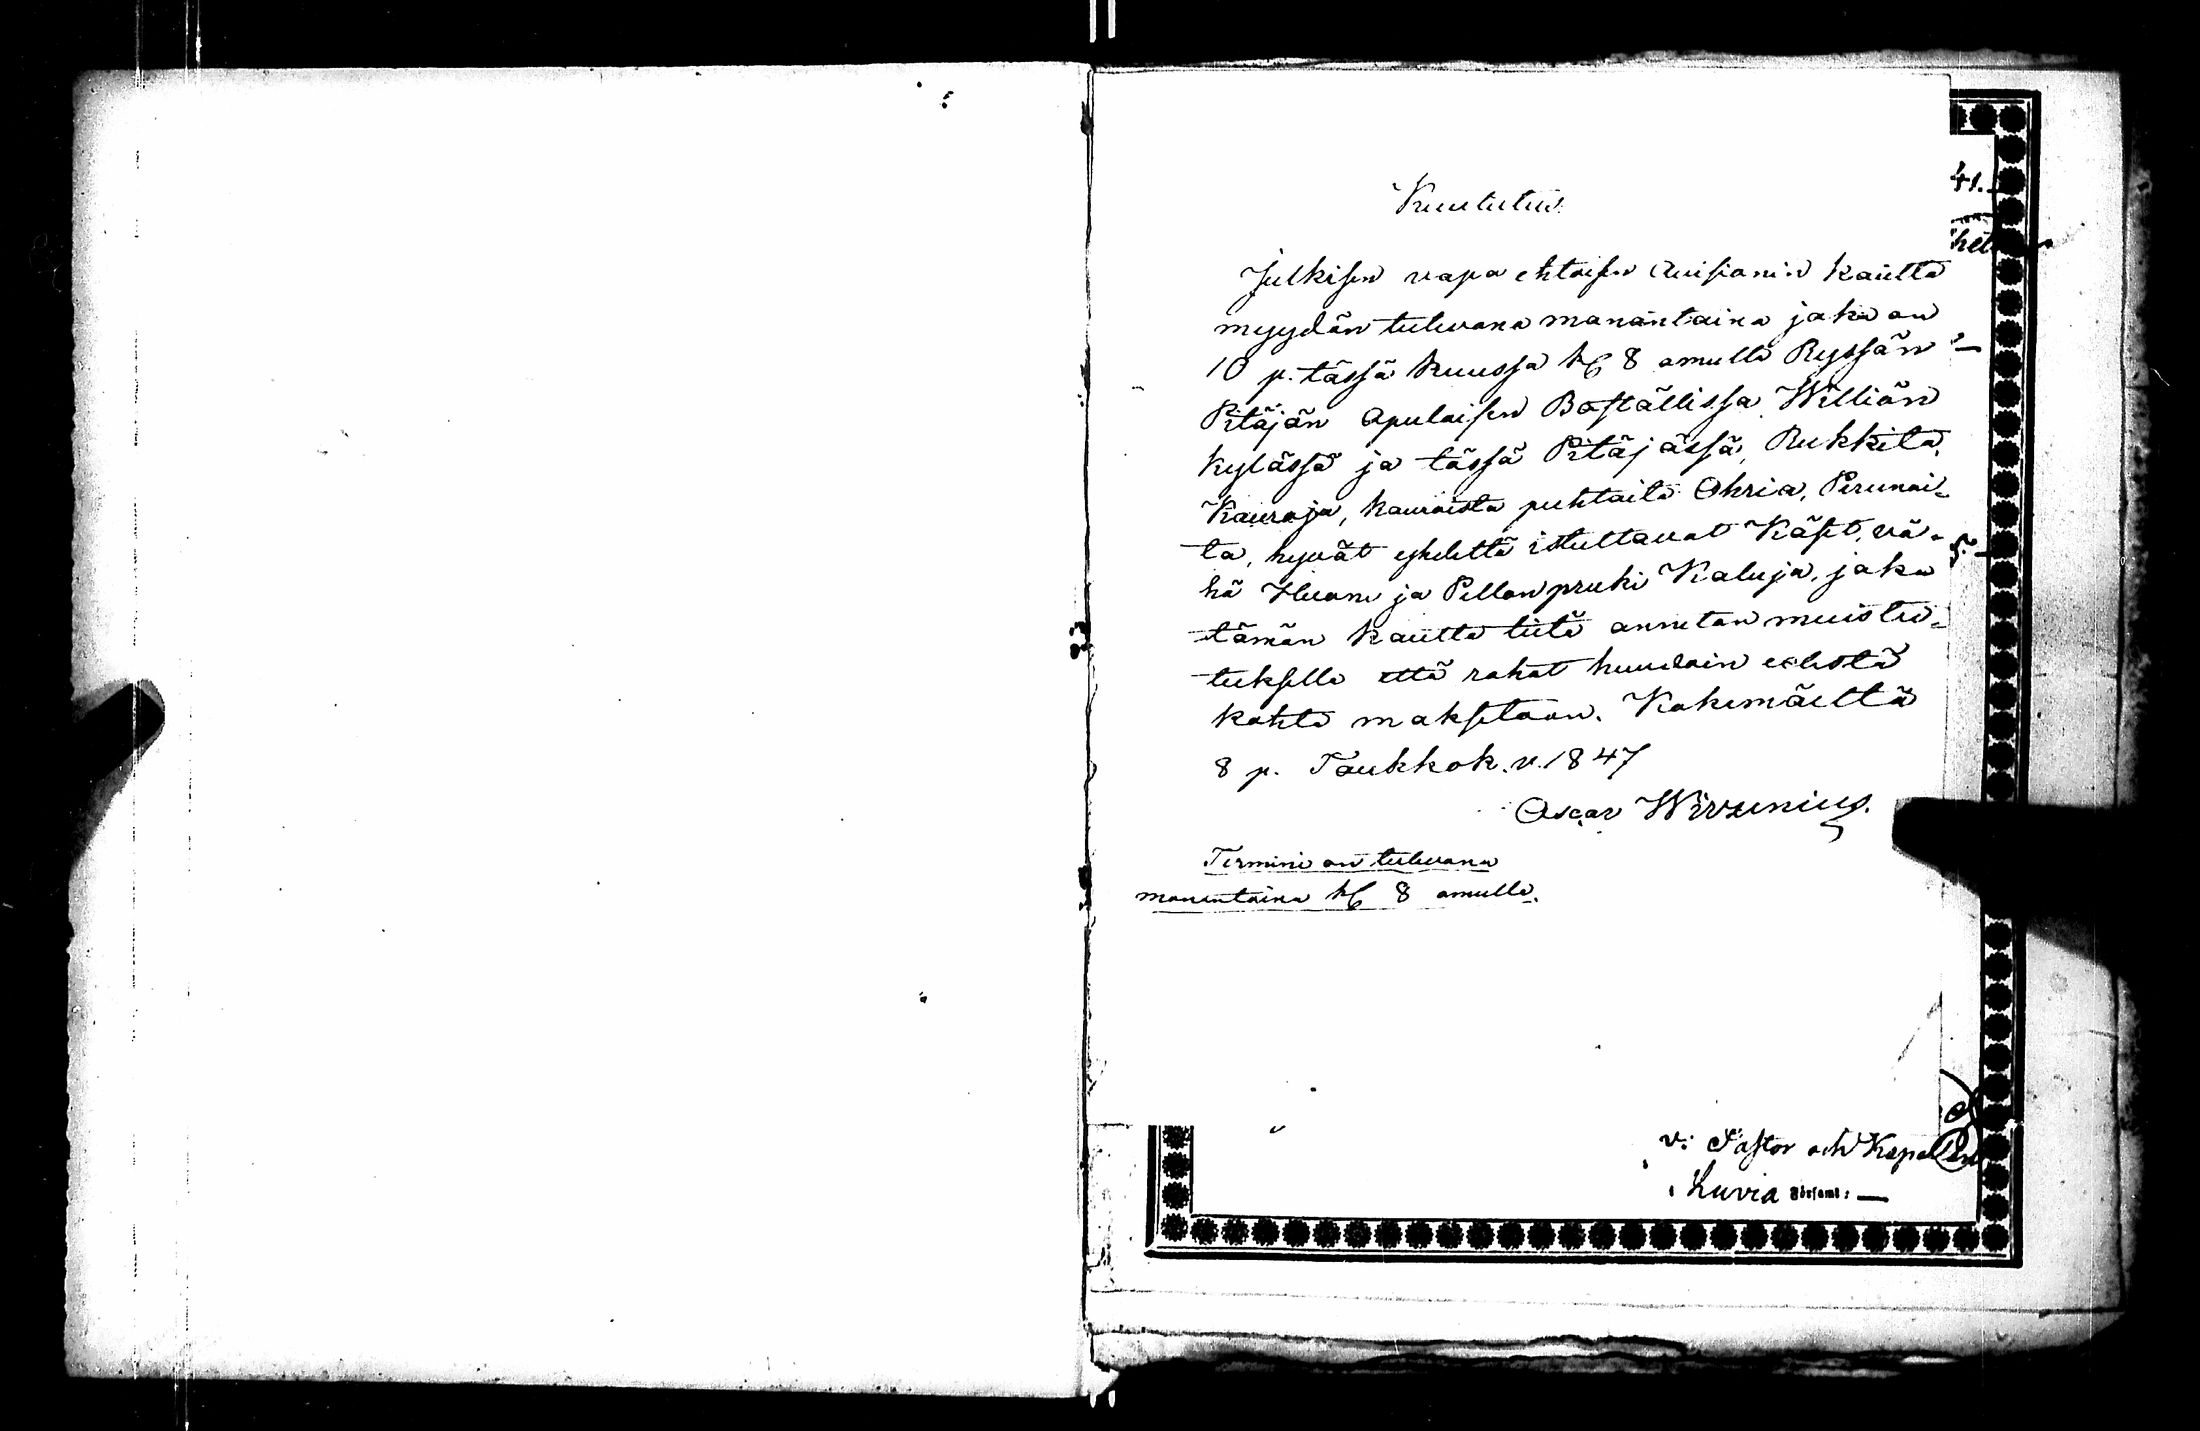 Kuulutus.
Julkisen vapa ehtoisen Auksionin kautta
myydän tulevana manantaina joka on
10 p. tässä kuussa kl 8 amulla
Pitäjän Apulaisen Boställissa Williön
kylässä ja tässä Pitäjässä, Rukkita,
Kauroja, kauroista puhtaita Ohria, Perunoi-
ta, hyvät istuttavat Käset, vä-
hä Huone ja Pellon pruki Kaluja, joka
tämän kautta tiitä annetan muistu-
tuksella että rahat huudoin edestä
kohta maksetaan. Kokemäeltä
8 p. Toukkok. v. 1847
Oscar Wirzenius.
Termini on tulevana
manantaina kl 8 amulla.
41.
v: Pastor och Kapellan
Luvia Församl: —